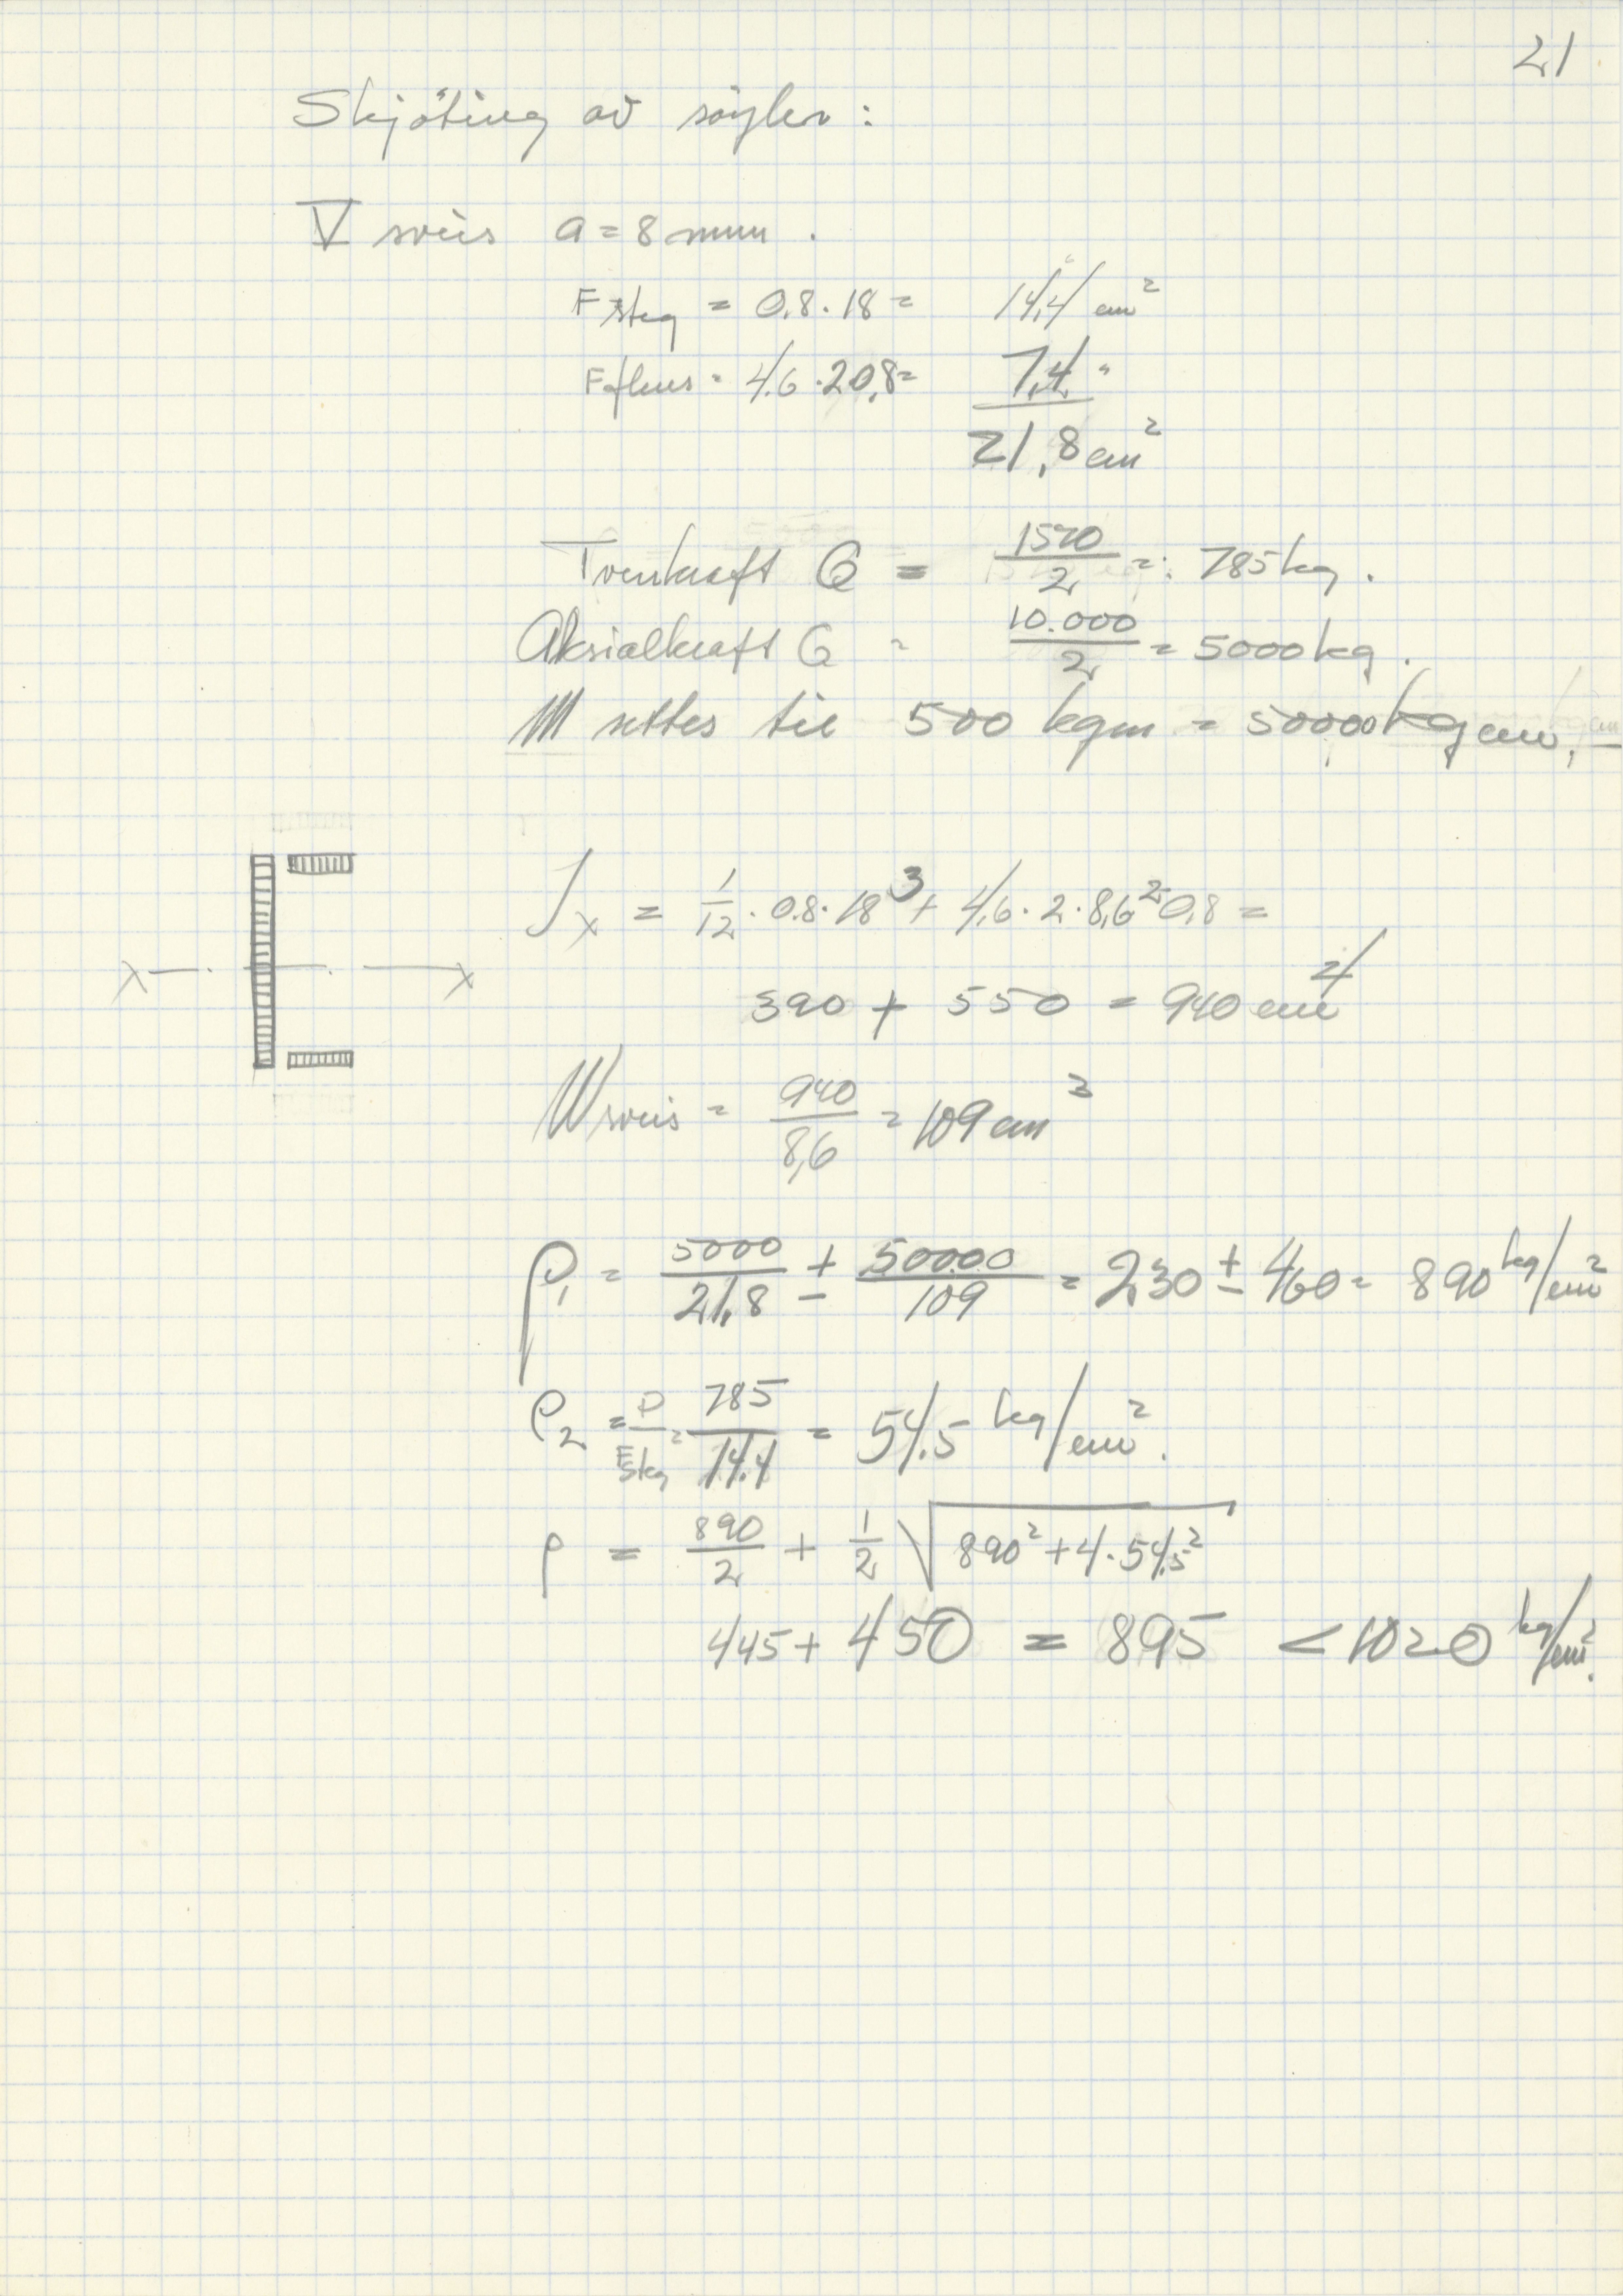 21
Skjøting av søyler:
V sveis a = 8 mm.
F steg = 0,8 · 18 = 14,4 cm²
F flens = 4,6 · 2 0,8 = 7,4 "
21,8 cm²
Tverrkraft Q = 1570/2 = 785 kg.
Aksialkraft G = 10.000/2 = 5000 kg.
M settes til 500 kgm = 50000 kg cm.
Jx = 1/12 · 0,8 · 18³ + 4,6 · 2 · 8,6² 0,8 =
X X
390 + 550 = 940 cm⁴
W sveis = 940/8,6 = 109 cm³
ρ₁ = 5000/21,8 ± 50000/109 = 230 ± 460 = 890 kg/cm²
ρ₂ = P/F steg = 785/14,4 = 54,5 kg/cm².
ρ = 890/2 + 1/2 √890² + 4 · 54,5²
445 + 450 = 895 < 1020 kg/cm².